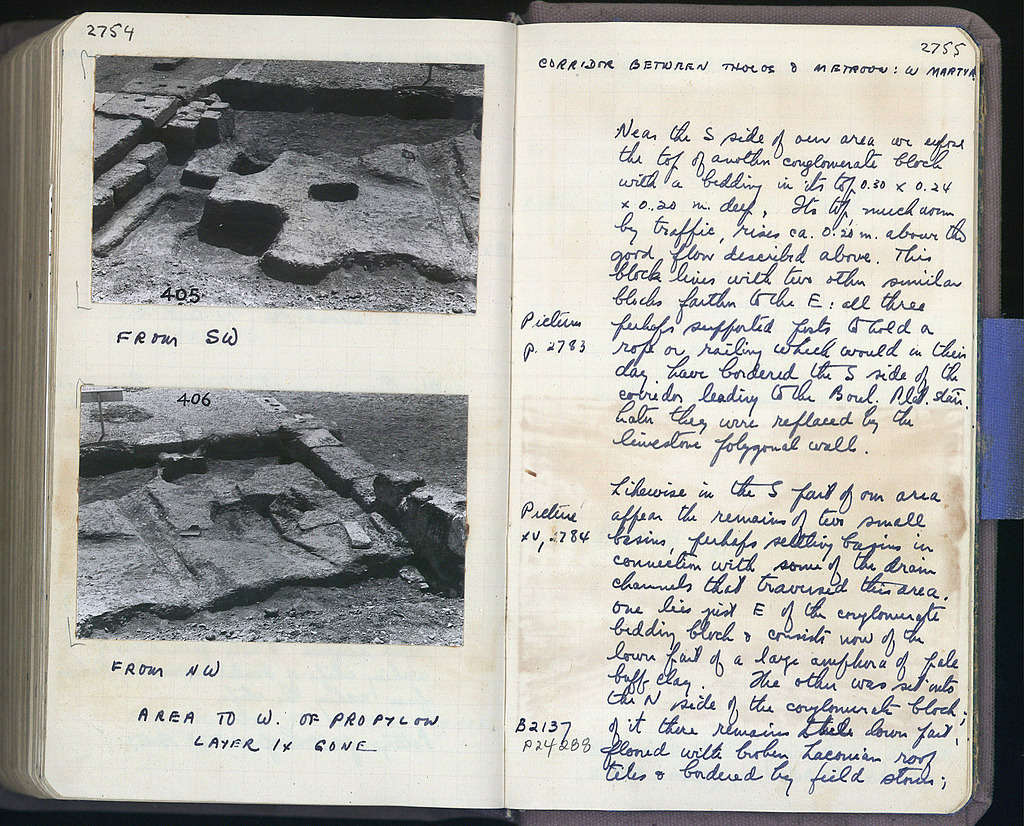 2754
405
FROM SW
406
FROM NW
AREA TO W. OF PROPYLON
LAYER IX GONE
2755
CORRIDOR BETWEEN THOLOS & METROON: W MARTYR
Near the S side of our area we expose
the top of another conglomerate block
with a bedding in its top 0.30 x 0.24
x 0.20 m. deep. Its top, much worn
by traffic, rises ca. 0.20 m. above the
good floor described above. This
block lines with two other similar
blocks farther to the E: all three
Picture
p. 2783
perhaps supported posts to hold a
rope or railing which would in their
day have bordered the S side of the
corridor leading to the Boul. Plat. stair.
Later they were replaced by the
limestone polygonal wall.
Likewise in the S part of our area
Picture
XV, 2784
appear the remains of two small
basins, perhaps settling basins in
connection with some of the drain
channels that traversed this area.
One lies just E of the conglomerate
bedding block & consists now of the
lower part of a large amphora of pale
buff clay. The other was set into
the N side of the conglomerate block;
B2137
P24288
of it there remains the lower part,
floored with broken Laconian roof
tiles & bordered by field stones;